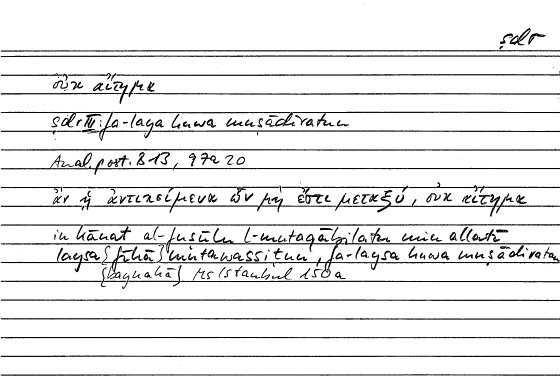 ṣdr
οὐκ αἴτημα
ṣdr III: fa-laysa huwa muṣādiratun
Anal. post. B 13, 97a20
ἂν ᾖ ἀντικείμενα ὧν μή ἐστι μεταξύ, οὐκ αἴτημα
in kānat al-fuṣūlu l-mutaqābilatu min allatī
laysa {fīhā} mutawassiṭun, fa-laysa huwa muṣādiratan
{baynahā} Ms Istanbul 150a